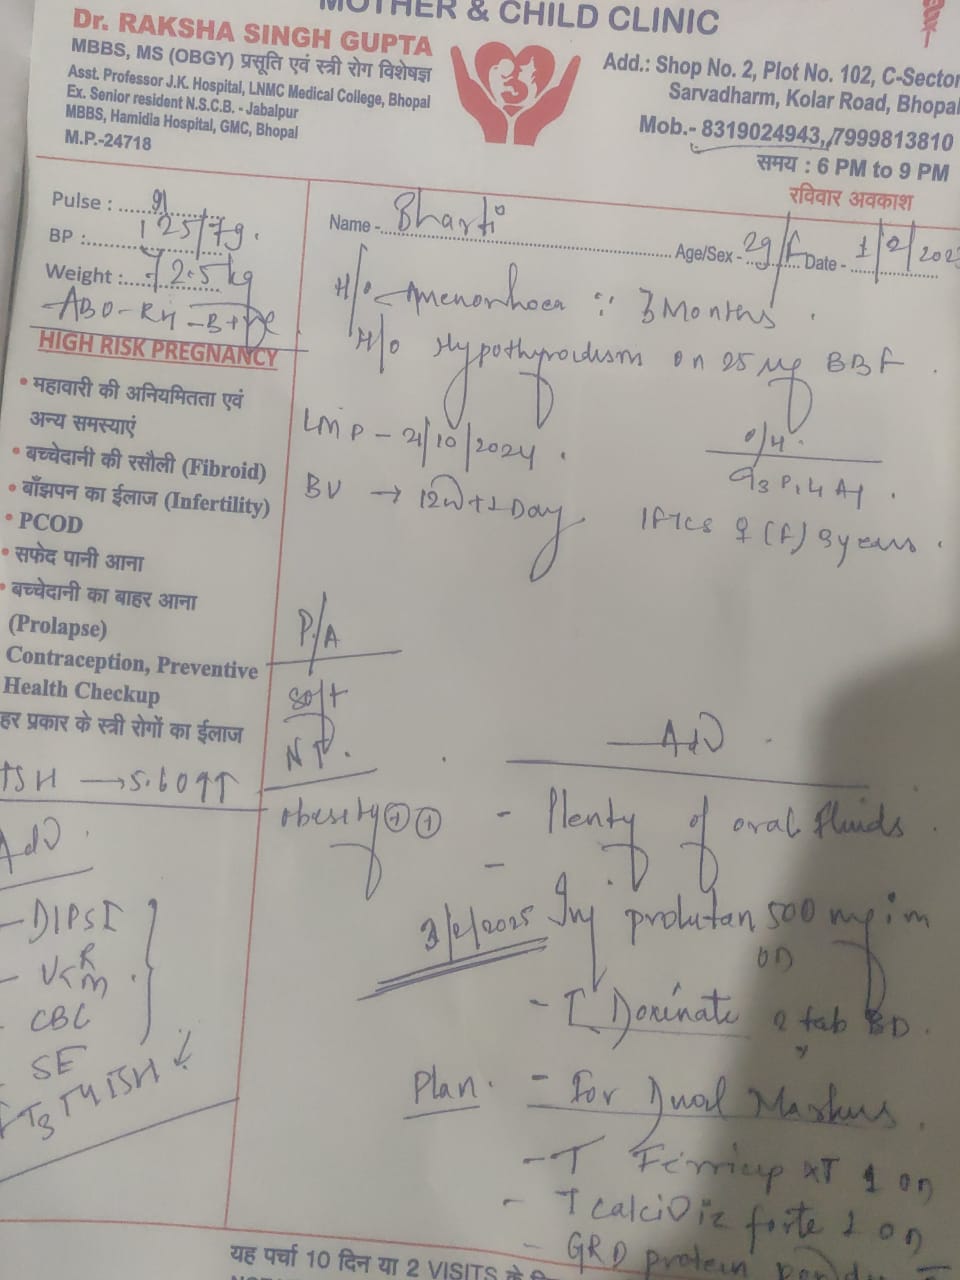 MOTHER & CHILD CLINIC
Dr. RAKSHA SINGH GUPTA
MBBS, MS (OBGY) प्रसूति एवं स्त्री रोग विशेषज्ञ
Asst. Professor J.K. Hospital, LNMC Medical College, Bhopal
Ex. Senior resident N.S.C.B. - Jabalpur
MBBS, Hamidia Hospital, GMC, Bhopal
M.P.-24718
Add.: Shop No. 2, Plot No. 102, C-Sector
Sarvadharm, Kolar Road, Bhopal
Mob.- 8319024943, 7999813810
समय : 6 PM to 9 PM
रविवार अवकाश
Pulse : 91
BP : 125/79.
Weight : 72.5 kg
ABO-RH - B+ve
Name - Bharti Age/Sex - 29/F Date - 1/2/202
HIGH RISK PREGNANCY
• महावारी की अनियमितता एवं
अन्य समस्याएं
• बच्चेदानी की रसौली (Fibroid)
• बाँझपन का ईलाज (Infertility)
• PCOD
• सफेद पानी आना
• बच्चेदानी का बाहर आना
(Prolapse)
Contraception, Preventive
Health Checkup
हर प्रकार के स्त्री रोगों का ईलाज
TSH → 5.60 ↑↑
Adv.
- DIPSI
- U< R M
- CBC
SE
T3 T4 TSH ↓
H/o Amenorhoea :: 3 Months.
H/o Hypothyroidism on 25 µg BBF.
LMP - 21/10/2024.
O/H.
G3 P1 L1 A1.
BY → 12w+1 Day.
♀ (F) 9 years.
P/A
Soft
NT.
obesity ⊕⊕
Adv.
- Plenty of oral fluids.
-
3/2/2025 Inj prolutan 500 mg im
OD
- T Doxinate 2 tab BD.
Plan. - For Dual Markers.
- T Ferricup XT 1 OD
- T calcidiz forte 1 OD
- GRD protein
यह पर्चा 10 दिन या 2 VISITS के